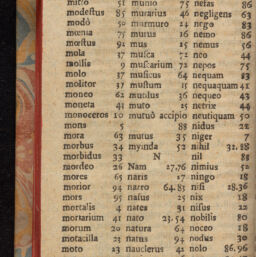 mitto 51 munio 75 nefas 86
modestus 85 murarius 46 negligens 63
modò 50 murmuro 24 nego 83
mœnia 75 murus 16 nemo 86
mœstus 92 mus 15 nemus 56
mola 37 musca 72 neo 44
mollis 9 muscarium 72 nepos 75
molo 37 musicus 64 nequam 83
molitor 37 mustum 15 nequaquam 41
moneo 62 musulus 36 nequeo 43
moneta 41 muto 15 netrix 44
monoceros 10 mutuò accipio neutiquam 50
mons 5 88 nidus 22
mora 63 mutus 35 niger 7
morbus 34 myinda 52 nihil 32.18
morbidus 33 N nil 88
mordeo 26 Nam 17.76 nimius 50
mores 65 naris 17 ningo 18
morior 94 narro 64.83 nisi 28.36
mors 95 nasus 25 nix 18
mortalis 4 nates 31 nisus 22
mortarium 41 nato 23.54 nobilis 80
morum 20 natura 64 noceo 18
motacilla 23 natus 94 nodus 30
moto 23 nauclerus 42 nolo 86.96